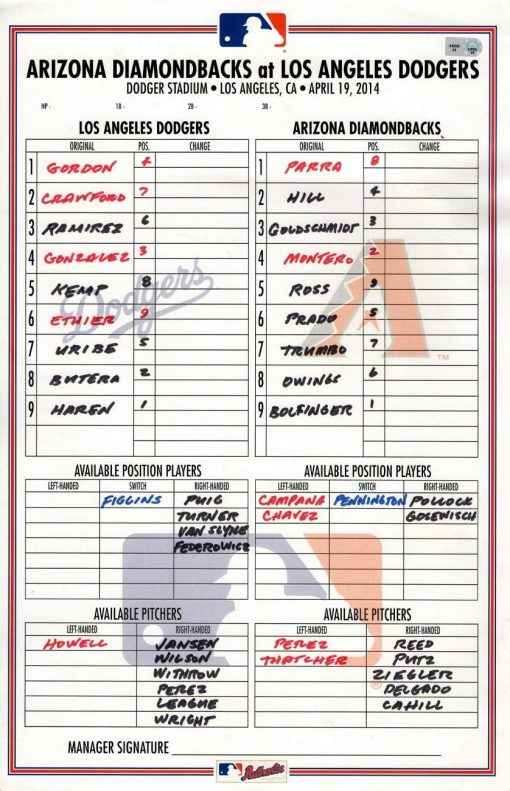 ARIZONA DIAMONDBACKS at LOS ANGELES DODGERS
DODGER STADIUM • LOS ANGELES, CA • APRIL 19, 2014
HP - 1B - 2B - 3B -
LOS ANGELES DODGERS
ORIGINAL POS. CHANGE
1 GORDON 4
2 CRAWFORD 7
3 RAMIREZ 6
4 GONZALEZ 3
5 KEMP 8
6 ETHIER 9
7 URIBE 5
8 BUTERA 2
9 HAREN 1
Dodgers
ARIZONA DIAMONDBACKS
ORIGINAL POS. CHANGE
1 PARRA 8
2 HILL 4
3 GOLDSCHMIDT 3
4 MONTERO 2
5 ROSS 9
6 PRADO 5
7 TRUMBO 7
8 OWINGS 6
9 BOLFINGER 1
A
TM
AVAILABLE POSITION PLAYERS
LEFT-HANDED SWITCH RIGHT-HANDED
FIGGINS PUIG
TURNER
VAN SLYKE
FEDEROWICZ
AVAILABLE POSITION PLAYERS
LEFT-HANDED SWITCH RIGHT-HANDED
CAMPANA PENNINGTON POLLOCK
CHAVEZ GOSEWISCH
AVAILABLE PITCHERS
LEFT-HANDED RIGHT-HANDED
HOWELL JANSEN
WILSON
WITHROW
PEREZ
LEAGUE
WRIGHT
AVAILABLE PITCHERS
LEFT-HANDED RIGHT-HANDED
PEREZ REED
THATCHER PUTZ
ZIEGLER
DELGADO
CAHILL
®
MANAGER SIGNATURE
Authentic